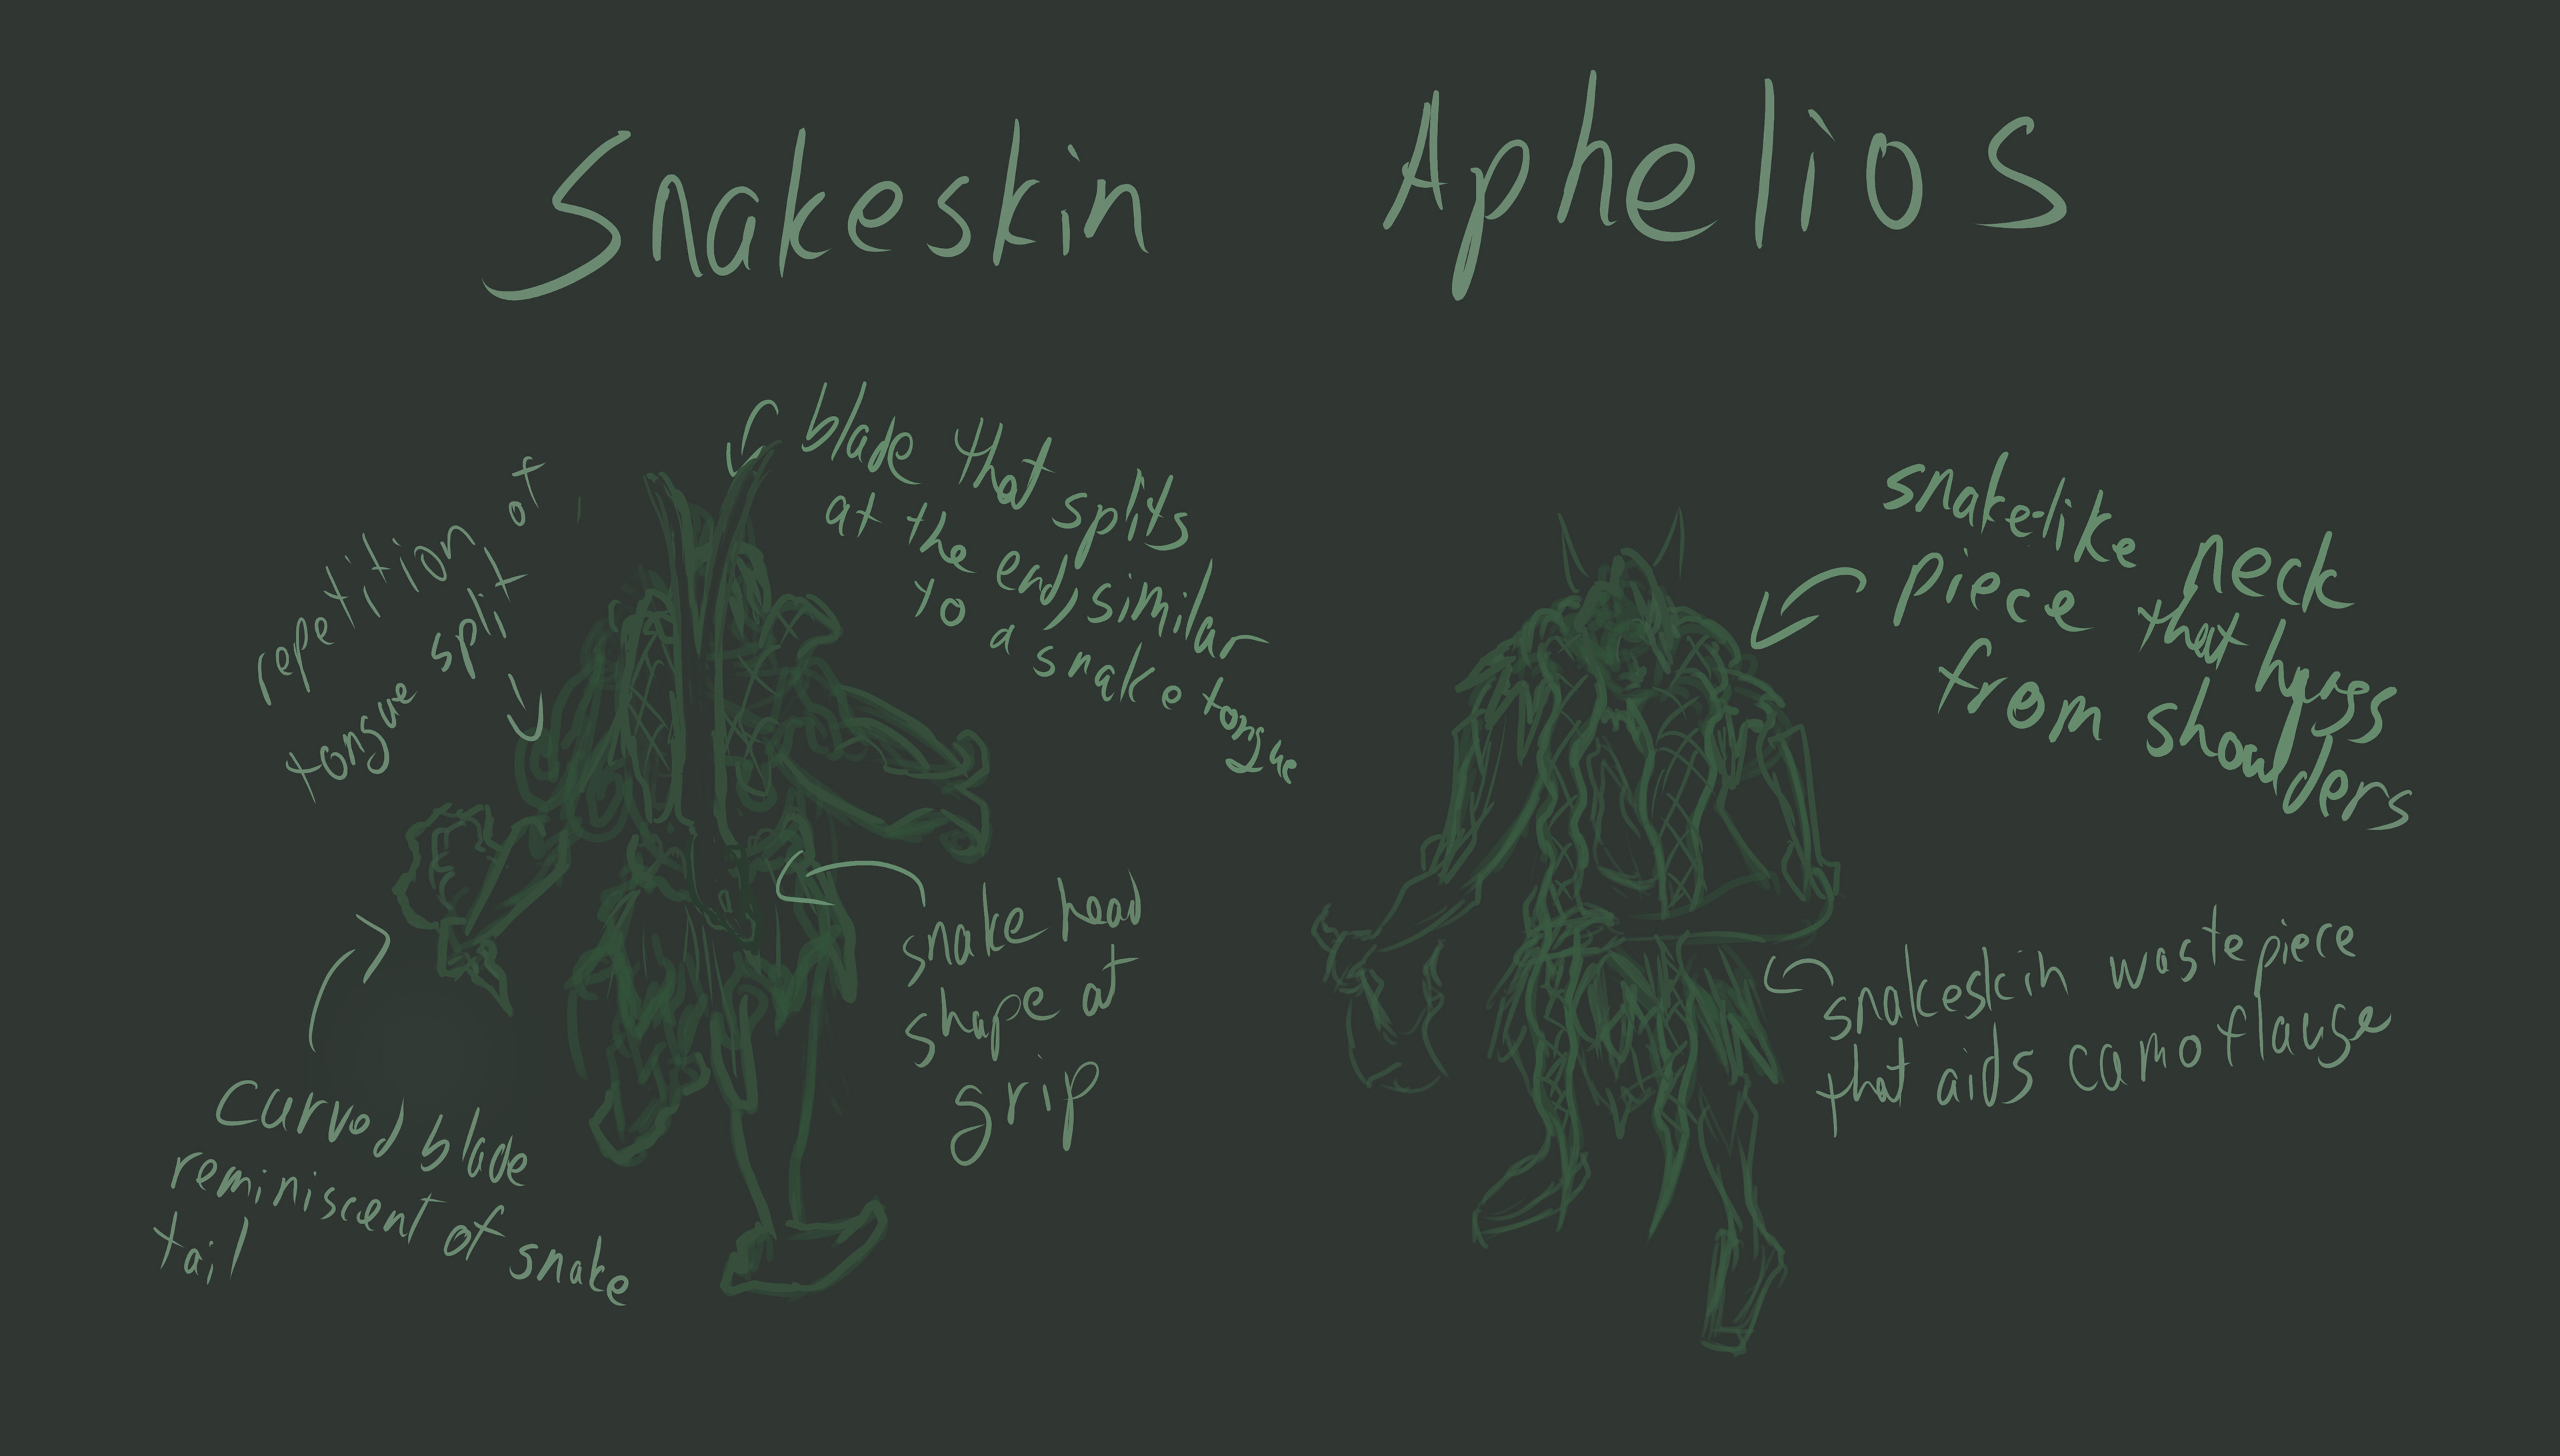 Snakeskin Aphelios
repetition of
tongue split
blade that splits
at the end, similar
to a snake tongue
snake-like neck
piece that hugs
from shoulders
snake head
shape at
grip
snakeskin waste piece
that aids camoflauge
curved blade
reminiscent of snake
tail